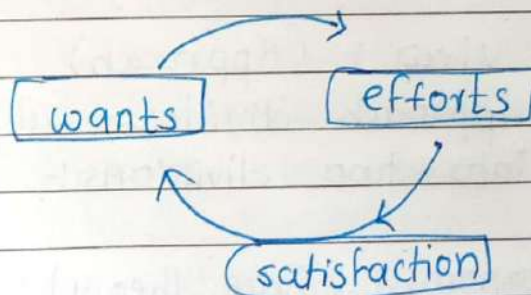 wants
efforts
satisfaction